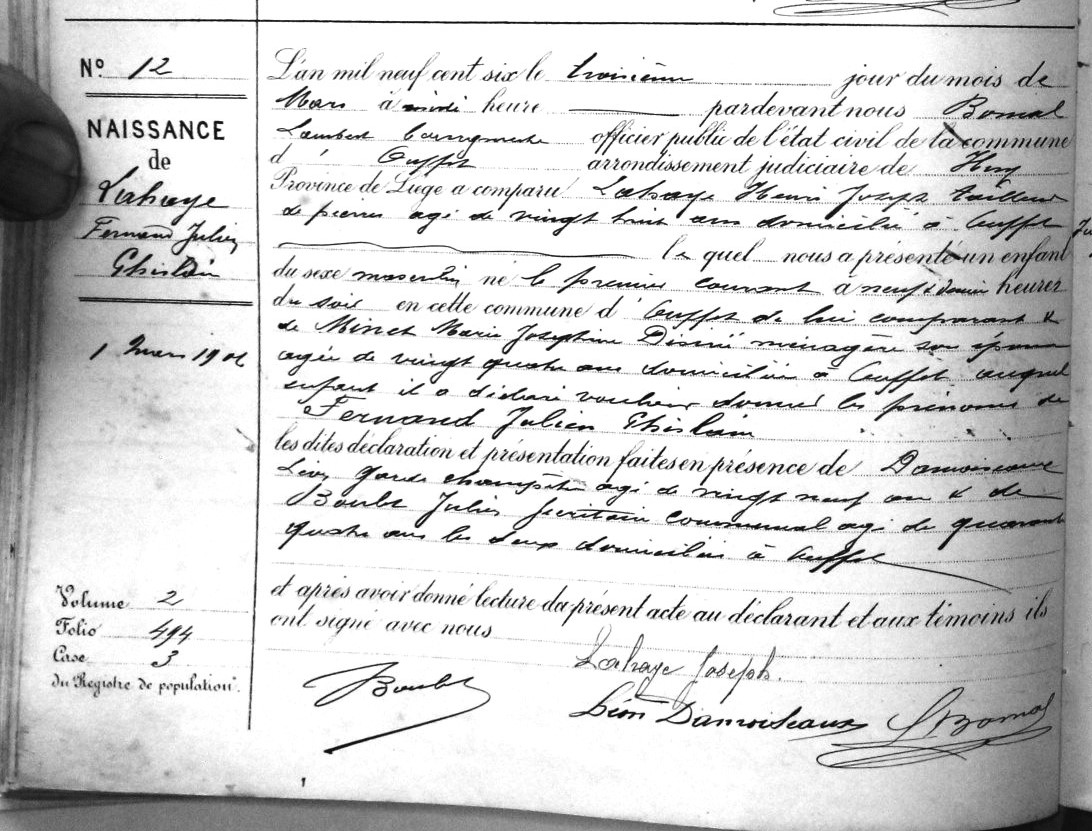 N° 12
NAISSANCE
de
Lahaye
Fernand Julien
Ghislain
1 mars 1906
Volume 2
Folio 494
Case 3
du Registre de population.
L'an mil neuf cent six le troisième jour du mois de
Mars à midi heure pardevant nous Bomal
Lambert officier public de l'état civil de la commune
d' Ouffet arrondissement judiciaire de Huy
Province de Liege a comparu Lahaye Henri Joseph tailleur
de pierres agé de vingt huit ans domicilié à Ouffet
le quel nous a présenté un enfant
du sexe masculin né le premier courant à neuf & demie heures
du soir en cette commune d' Ouffet de lui comparant &
de Minet Marie Josephine Désiré ménagère son épouse
agée de vingt quatre ans domiciliée à Ouffet auquel
enfant il a déclaré vouloir donner les prénoms de
Fernand Julien Ghislain
les dites déclaration et présentation faites en présence de Damoiseaux
Léon garde champêtre agé de vingt neuf ans & de
Boulet Julien secrétaire communal agé de quarante
quatre ans les deux domiciliés à Ouffet
et après avoir donné lecture du présent acte au déclarant et aux témoins ils
ont signé avec nous
Lahaye Joseph.
JBoulet
Léon Damoiseaux LBomal